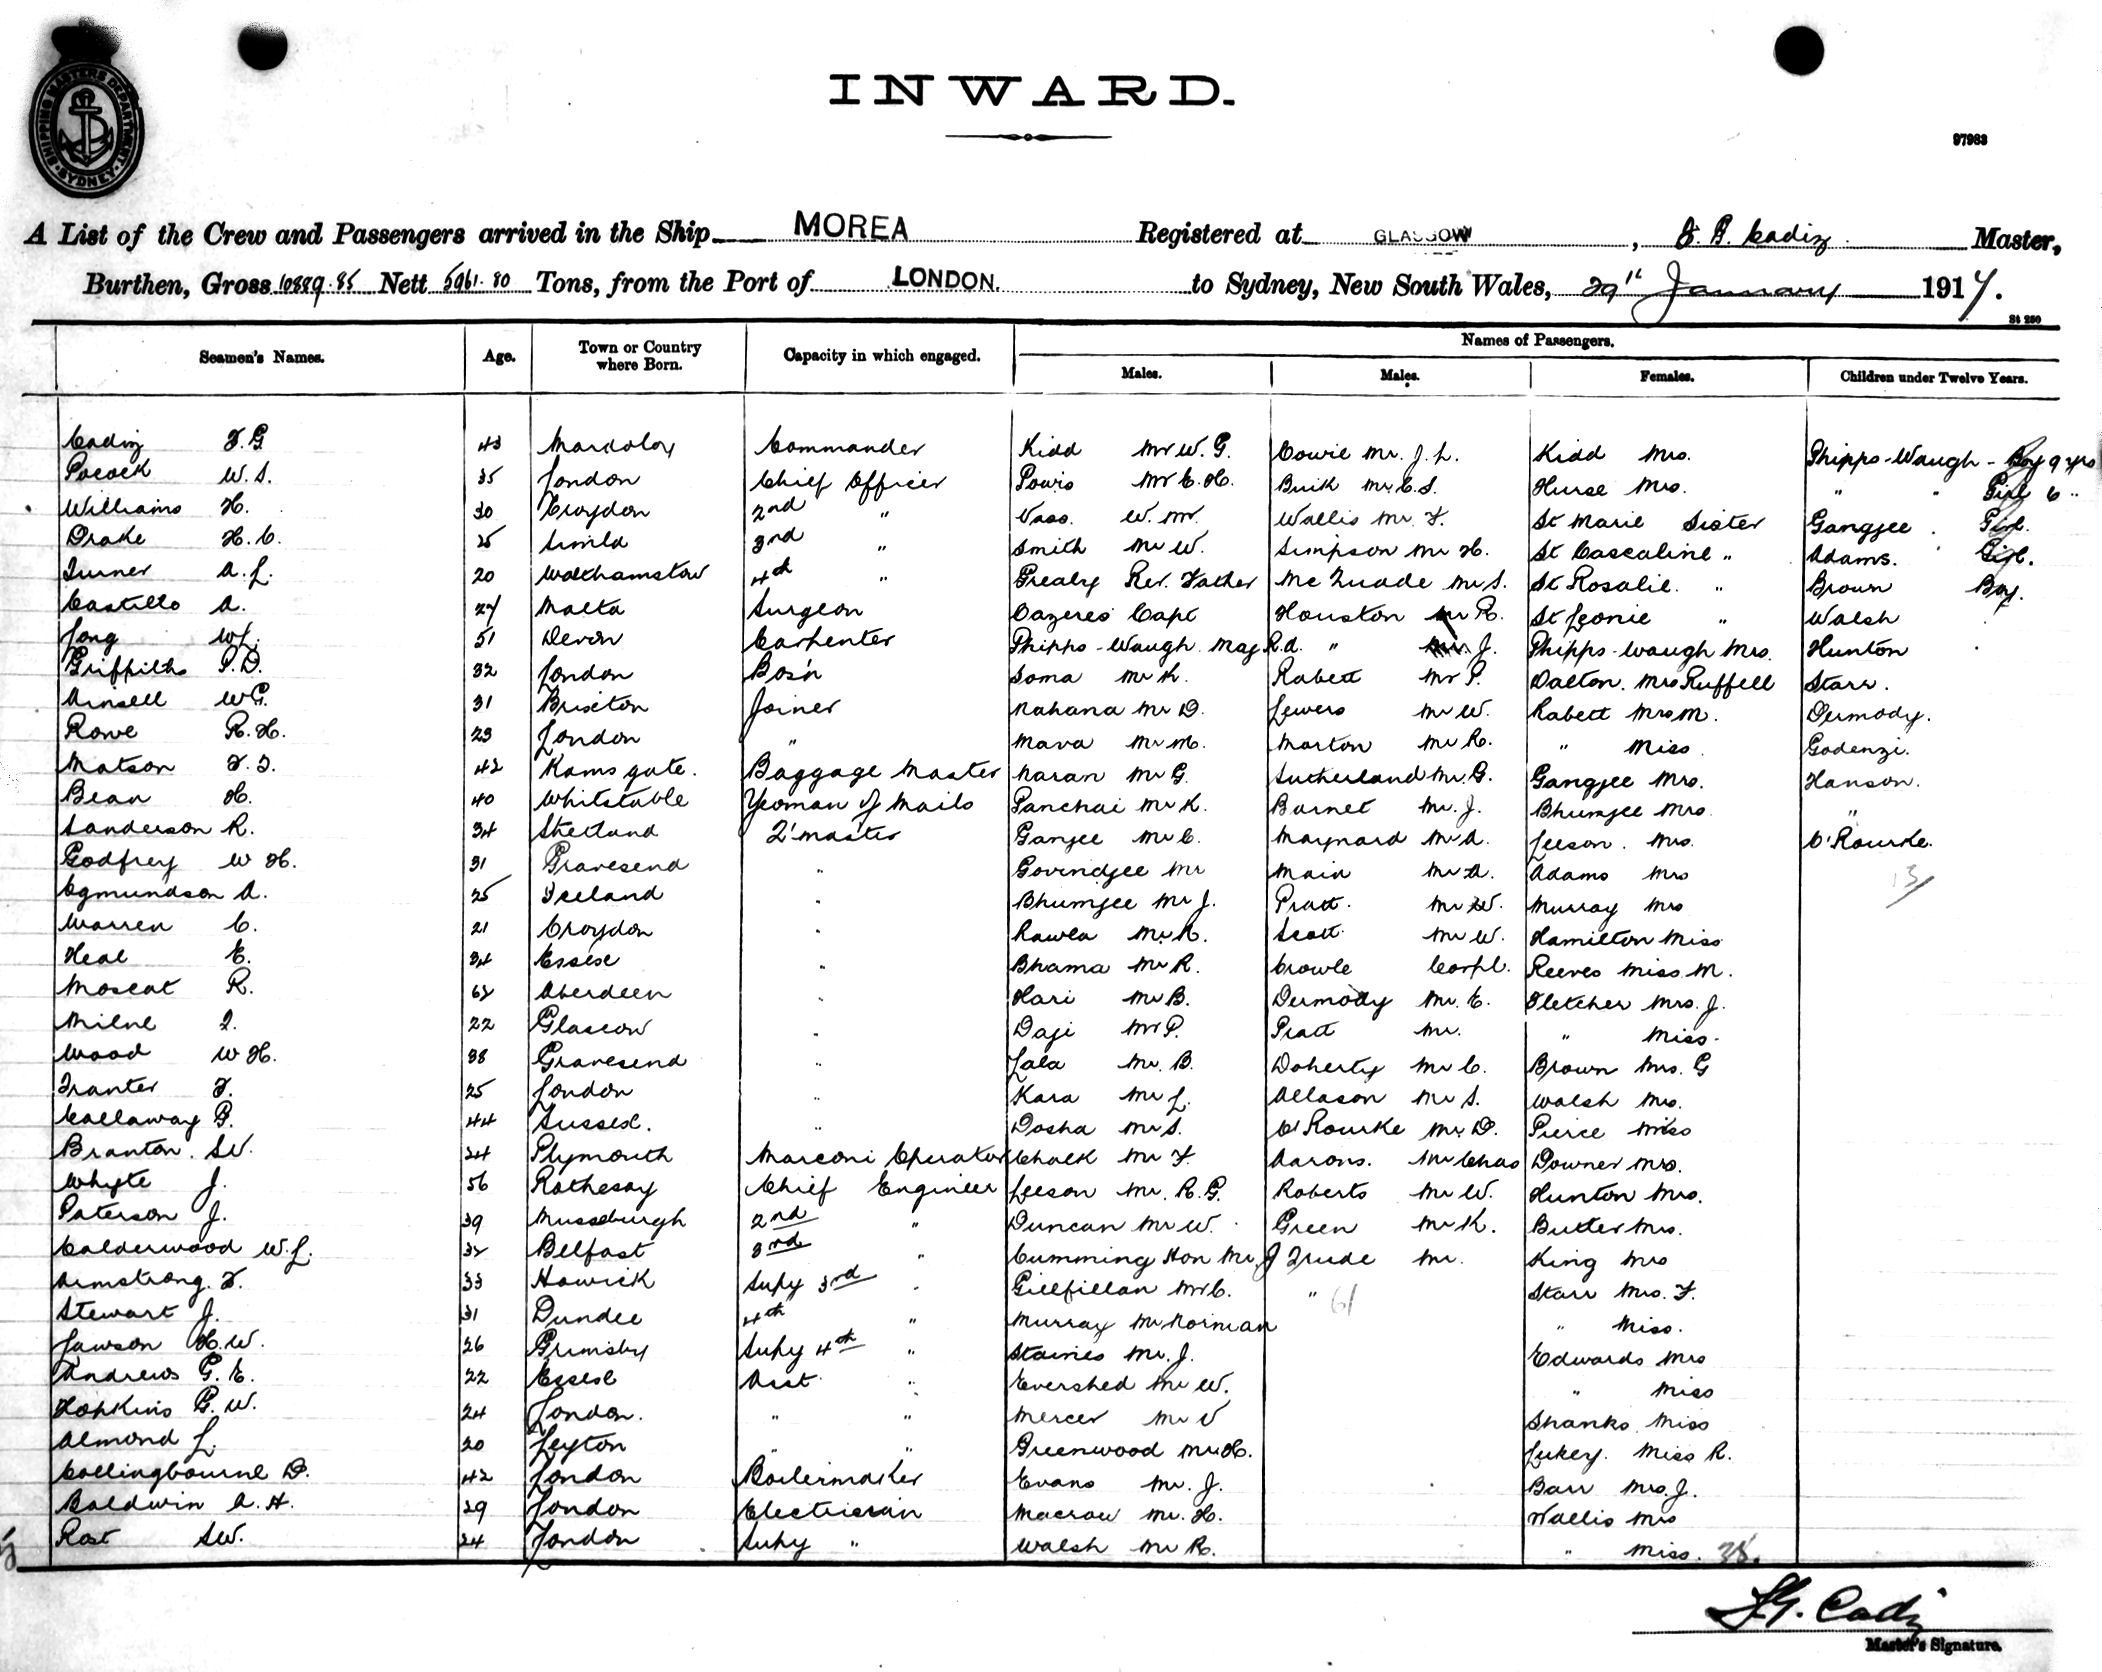 SHIPPING MASTERS DEPARTMENT SYDNEY
INWARD.
97983
A List of the Crew and Passengers arrived in the Ship MOREA Registered at GLASGOW, F. G. Cadiz Master,
Burthen, Gross 10889.85 Nett 5961.80 Tons, from the Port of LONDON. to Sydney, New South Wales, 29th January 1914.
St 250
Seamen's Names. Age. Town or Country where Born. Capacity in which engaged. Names of Passengers.
Males. Males. Females. Children under Twelve Years.
Cadiz F.G 43 Commander Kidd Mr W. G. Cowie Mr. J. L. Kidd Mrs. Phipps-Waugh - Boy 9 yrs
Pocock W. S. 35 London Chief Officer Powis Mr C. H. Buik Mr. C. S. Hurse Mrs. " " Girl 6 "
Williams H. 30 Croydon 2nd " Vass. W. Mr. Wallis Mr. F. St Marie Sister Gangjee. Girl.
Drake H. C. 25 3rd " Smith Mr W. Simpson Mr H. St Cascaline " Adams. Girl.
Turner A. L. 20 Walthamstow 4th " Grealy Rev. Father Mc Quade Mr S. St Rosalie. " Brown Boy.
Castillo A. 27 Malta Surgeon Cazeres Capt Houston Mr R. St Leonie " Walsh
Long W L. 51 Devon Carpenter Phipps-Waugh Maj R.d. " Mr. J. Phipps-Waugh Mrs. Hunton
Griffiths P. D. 32 London Bos'n Soma Mr K. Rabett Mr P. Dalton. Mrs Ruffell Starr.
Ainsell W G. 31 Brixton Joiner Nahana Mr D. Lewers Mr W. Rabett Mrs M. Dermody.
Rowe R. H. 23 London " Mava Mr M. Morton Mr R. " Miss Godenzi.
Matson F. T. 42 Ramsgate. Baggage Master Naran Mr G. Sutherland Mr. G. Gangjee Mrs. Hanson.
Bean H. 40 Whitstable Yeoman of Mails Panchai Mr K. Barnet Mr. J. Bhumjee Mrs "
Sanderson R. 34 Shetland Q'master Ganjee Mr C. Maynard Mr A. Leeson. Mrs. O'Rourke.
Godfrey W H. 31 Gravesend " Govindjee Mr Main Mr A. Adams Mrs 13/
Egmundson A. 25 Iceland " Bhumjee Mr J. Pratt. Mr W. Murray Mrs
Warren C. 21 Croydon " Rawla Mr. R. Scott Mr W. Hamilton Miss
Heal E. 34 Essex " Bhama Mr R. Crowle Corpl. Reeves Miss M.
Moscat R. 62 Aberdeen Hari Mr B. Dermody Mr. E. Fletcher Mrs. J.
Milne J. 22 Glascow " Daji Mr P. Pratt Mr. " Miss.
Wood W H. 38 Gravesend " Lala Mr. B. Doherty Mr C. Brown Mrs. G
Tranter F. 25 London " Kara Mr L. Allason Mr S. Walsh Mrs.
Callaway G. 44 Sussex. " Dosha Mr S. O'Rourke Mr. D. Pierce Miss
Branton. S W. 24 Plymouth Marconi Operator Chalk Mr F. Aarons. Mr Chas Downer Mrs.
Whyte J. 56 Rothesay Chief Engineer Leeson Mr. R. G. Roberts Mr W. Hunton Mrs.
Paterson J. 39 Musselburgh 2nd " Duncan Mr W. Green Mr K. Butter Mrs.
Calderwood W. L. 32 Belfast 3rd " Cumming Hon Mr. J Trude Mr. King Mrs
Armstrong. F. 33 Howick Supy 3rd " Gillfillan Mr C. " 61 Starr Mrs. F.
Stewart J. 31 Dundee 4th " Murray Mr Norman " Miss.
Lawson H. W. 26 Grimsby Supy 4th " Staines Mr. J. Edwards Mrs
Andrews G. E. 22 Essex Asst " Evershed Mr W. " Miss
Hopkins G. W. 24 London. " " Mercer Mr V Shanks Miss
Almond L. 20 Leyton " " Greenwood Mr H. Lukey. Miss R.
Collingbourne D. 42 London Boilermaker Evans Mr. J. Barr Mrs. J.
Baldwin A. H. 29 London Electrician Macrow Mr. H. Wallis Mrs
Rost S W. 24 London Supy " Walsh Mr R. " Miss. 38.
F.G. Cadiz
Master's Signature.